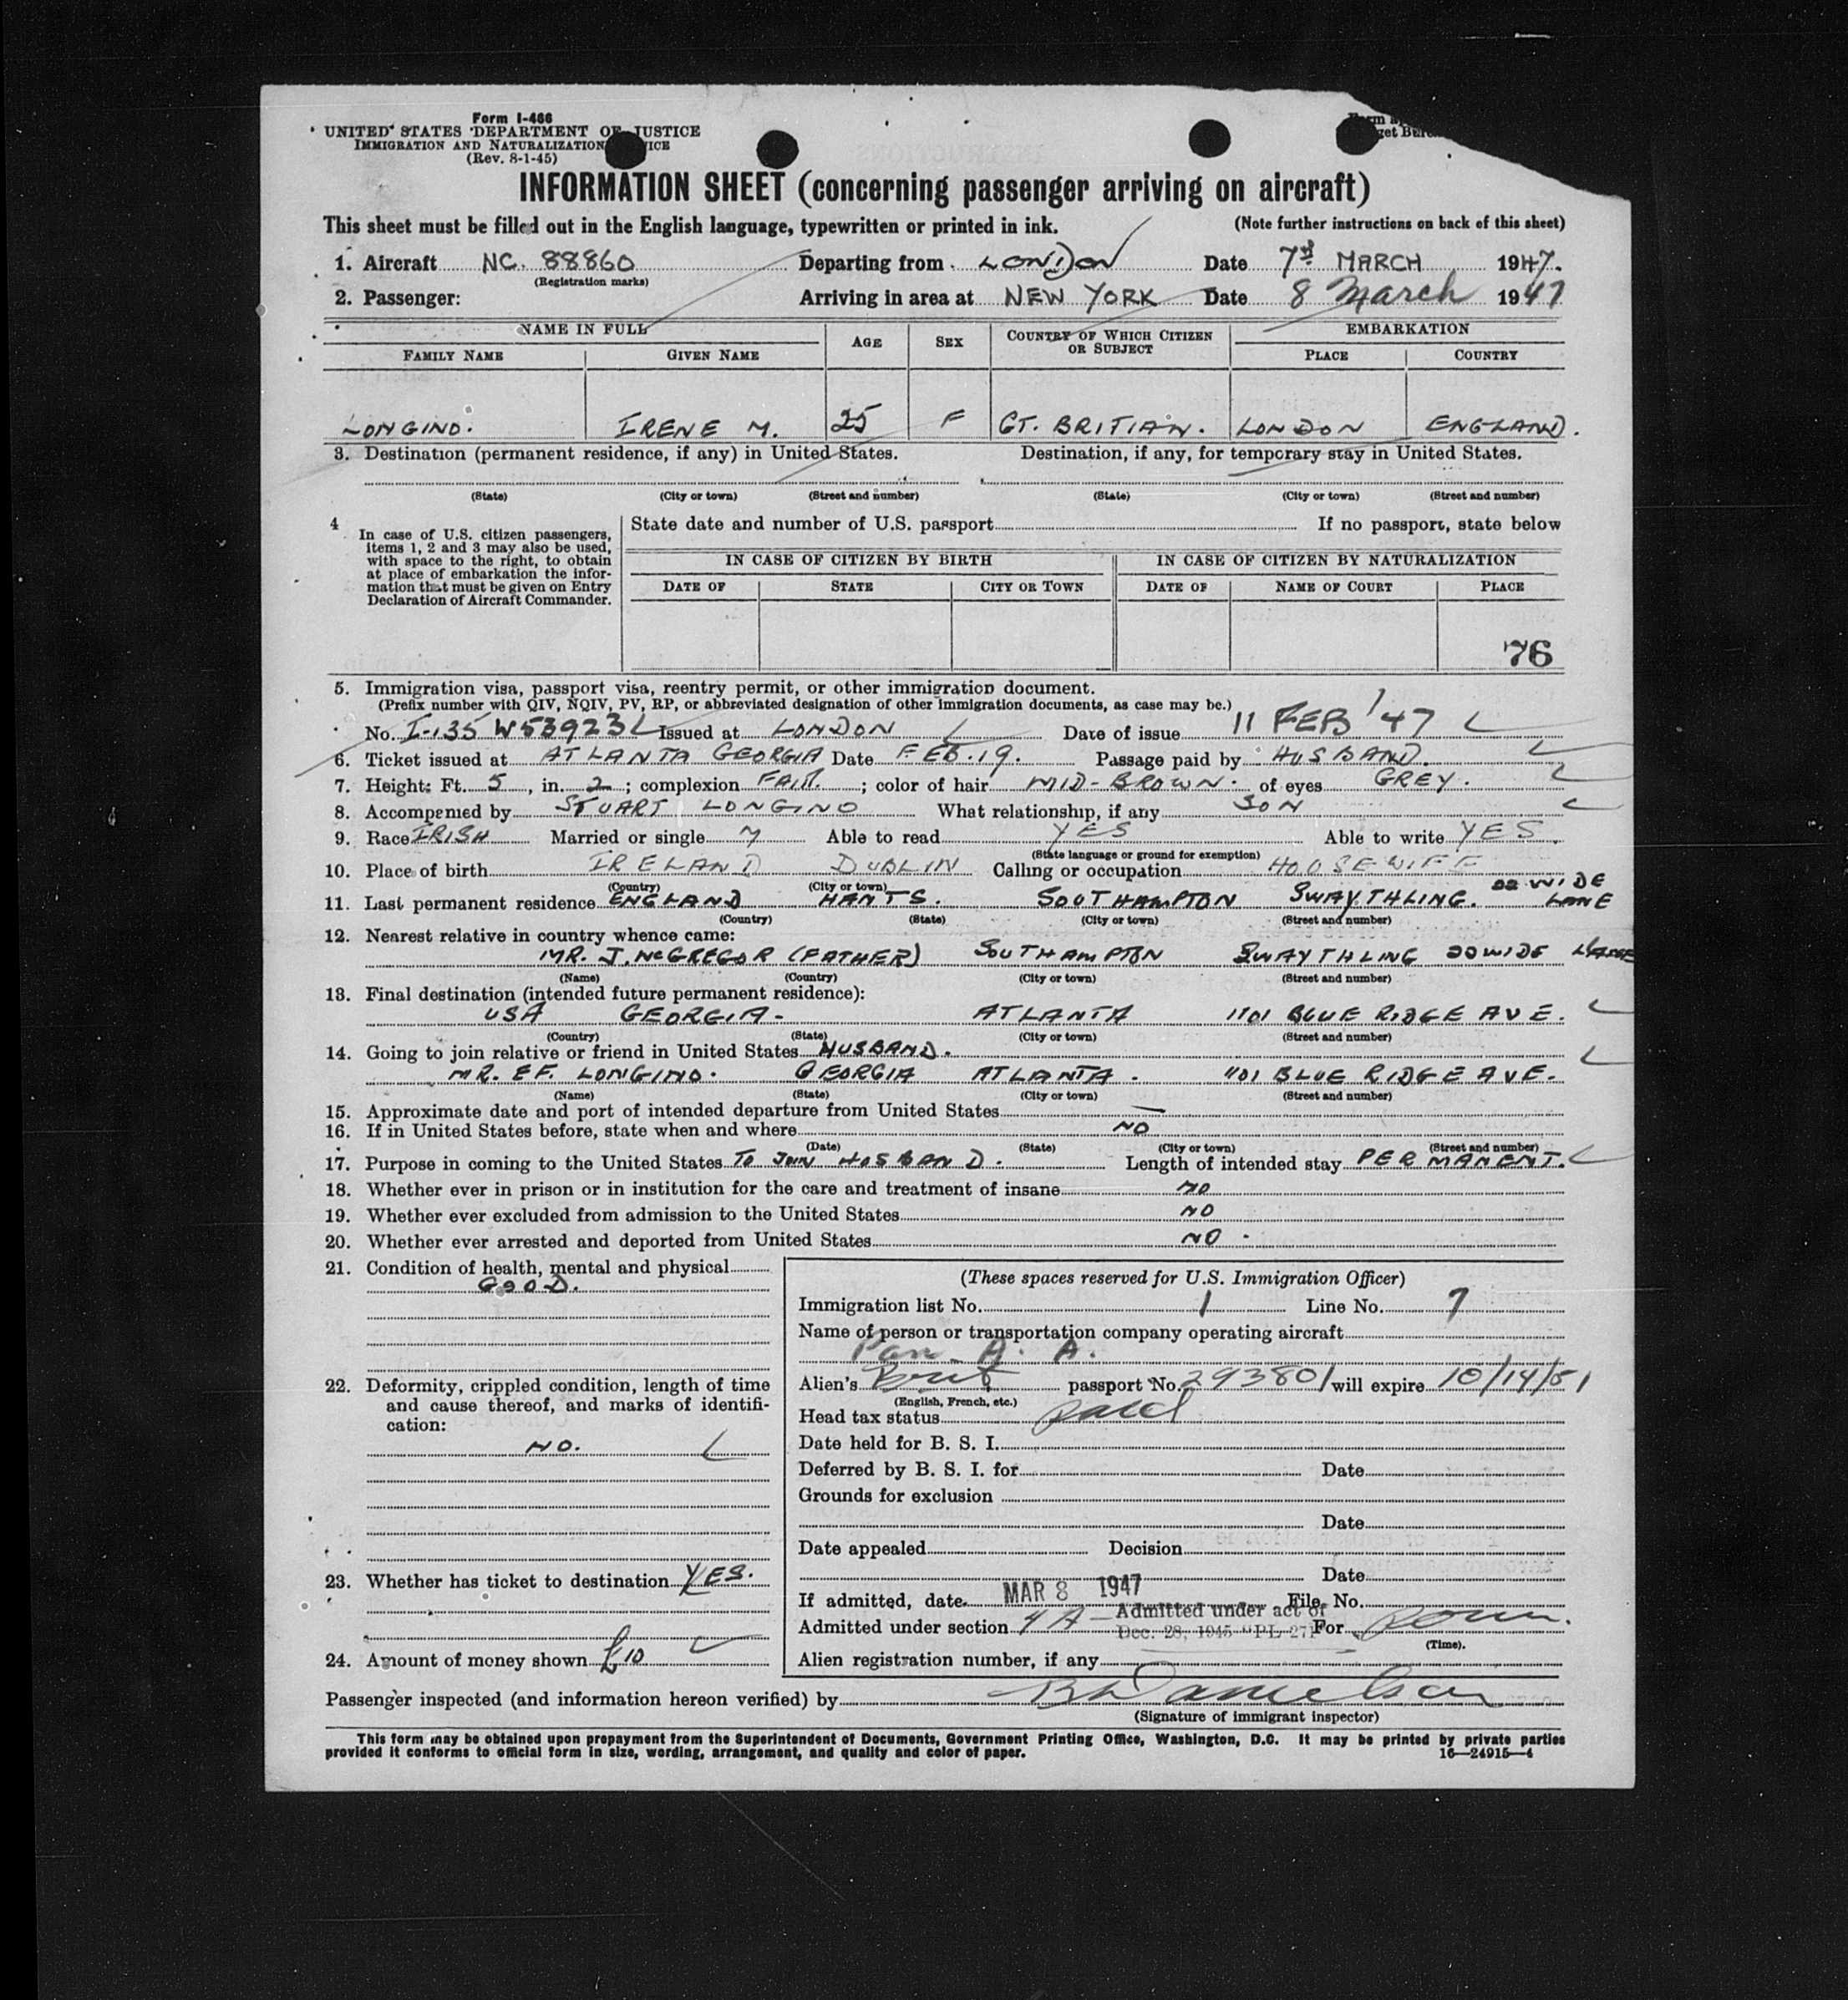 Form I-466
UNITED STATES DEPARTMENT OF JUSTICE
IMMIGRATION AND NATURALIZATION SERVICE
(Rev. 8-1-45)
INFORMATION SHEET (concerning passenger arriving on aircraft)
This sheet must be filled out in the English language, typewritten or printed in ink. (Note further instructions on back of this sheet)
1. Aircraft NC. 88860 Departing from LONDON Date 7 MARCH 1947.
(Registration marks)
2. Passenger: Arriving in area at NEW YORK Date 8 March 1947
NAME IN FULL AGE SEX COUNTRY OF WHICH CITIZEN OR SUBJECT EMBARKATION
FAMILY NAME GIVEN NAME PLACE COUNTRY
LONGINO. IRENE M. 25 F GT. BRITIAN. LONDON ENGLAND.
3. Destination (permanent residence, if any) in United States. Destination, if any, for temporary stay in United States.
(State) (City or town) (Street and number) (State) (City or town) (Street and number)
4 In case of U.S. citizen passengers, items 1, 2 and 3 may also be used, with space to the right, to obtain at place of embarkation the information that must be given on Entry Declaration of Aircraft Commander.
State date and number of U.S. passport If no passport, state below
IN CASE OF CITIZEN BY BIRTH IN CASE OF CITIZEN BY NATURALIZATION
DATE OF STATE CITY OR TOWN DATE OF NAME OF COURT PLACE
76
5. Immigration visa, passport visa, reentry permit, or other immigration document.
(Prefix number with QIV, NQIV, PV, RP, or abbreviated designation of other immigration documents, as case may be.)
No. I-135 W53923 Issued at LONDON Date of issue 11 FEB '47
6. Ticket issued at ATLANTA GEORGIA Date FEB. 19. Passage paid by HUSBAND.
7. Height: Ft. 5, in. 2; complexion FAIR.; color of hair MID-BROWN. of eyes GREY.
8. Accompenied by STUART LONGINO What relationship, if any SON
9. Race IRISH Married or single M Able to read YES Able to write YES.
(State language or ground for exemption)
10. Place of birth IRELAND DUBLIN Calling or occupation HOUSEWIFE
(Country) (City or town)
11. Last permanent residence ENGLAND HANTS. SOUTHAMPTON SWAYTHLING. 22 WIDE LANE
(Country) (State) (City or town) (Street and number)
12. Nearest relative in country whence came:
MR. J. McGREGOR (FATHER) SOUTHAMPTON SWAYTHLING 22 WIDE LANE
(Name) (Country) (City or town) (Street and number)
13. Final destination (intended future permanent residence):
USA GEORGIA- ATLANTA 1101 BLUE RIDGE AVE.
(Country) (State) (City or town) (Street and number)
14. Going to join relative or friend in United States HUSBAND.
MR. EF. LONGINO. GEORGIA ATLANTA. 1101 BLUE RIDGE AVE.
(Name) (State) (City or town) (Street and number)
15. Approximate date and port of intended departure from United States —
16. If in United States before, state when and where NO
(Date) (State) (City or town) (Street and number)
17. Purpose in coming to the United States TO JOIN HUSBAND. Length of intended stay PERMANENT.
18. Whether ever in prison or in institution for the care and treatment of insane NO
19. Whether ever excluded from admission to the United States NO
20. Whether ever arrested and deported from United States NO.
21. Condition of health, mental and physical
GOOD.
22. Deformity, crippled condition, length of time
and cause thereof, and marks of identifi-
cation:
NO.
23. Whether has ticket to destination YES.
24. Amount of money shown £10
(These spaces reserved for U.S. Immigration Officer)
Immigration list No. 1 Line No. 7
Name of person or transportation company operating aircraft
Pan. A. A.
Alien's Brit passport No. 293801 will expire 10/14/51
(English, French, etc.)
Head tax status paid
Date held for B. S. I.
Deferred by B. S. I. for Date
Grounds for exclusion
Date
Date appealed Decision
Date
If admitted, date MAR 8 1947 File No.
Admitted under section 4A - Admitted under act of Dec. 28, 1945 "PL 271 For perm.
(Time).
Alien registration number, if any
Passenger inspected (and information hereon verified) by B Danielson
(Signature of immigrant inspector)
This form may be obtained upon prepayment from the Superintendent of Documents, Government Printing Office, Washington, D.C. It may be printed by private parties
provided it conforms to official form in size, wording, arrangement, and quality and color of paper. 16—24915-4